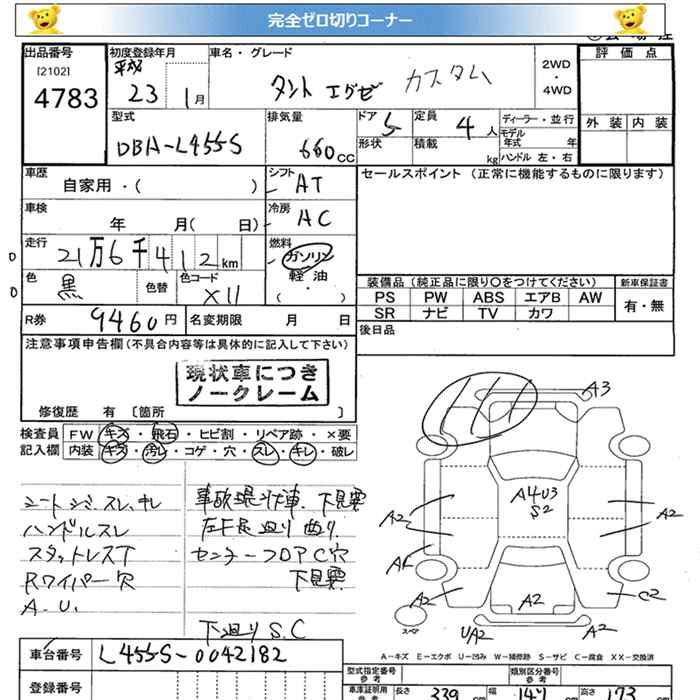 完全ゼロ切りコーナー
出品番号
[2102]
4783
初度登録年月
平成
23 1月
車名・グレード
タント エグゼ カスタム
2WD
・
4WD
評価点
外装 内装
型式
DBA-L455S
排気量
660cc
ドア 5
形状
定員 4人
積載 kg
ディーラー・並行
モデル年式 年
ハンドル 左・右
車歴
自家用・( )
シフト
AT
セールスポイント (正常に機能するものに限ります)
車検
年 月( 日)
冷房
AC
走行
21万6千412km
燃料
ガソリン
軽油
・
( )
色
黒
色替
色コード
X11
装備品 (純正品に限り〇をつけてください)
新車保証書
PS PW ABS エアB AW
SR ナビ TV カワ
有・無
R券 9460円
名変期限 月 日
後日品
注意事項申告欄(不具合内容等は具体的に記入して下さい)
現状車につき
ノークレーム
修復歴 有〔箇所 〕
検査員
記入欄
FW キズ・飛石・ヒビ割・リペア跡・×要
内装 キズ・汚レ・コゲ・穴・スレ・キレ・破レ
シート シミ、スレ、キレ
ハンドルスレ
スタットレスT
Rワイパー欠
A.U.
事故現状車、下見要
左F足廻り曲り
センターフロアC穴
下見要
下廻りS.C
A3
A4U3
S2
A2
A2
A1
A2
A2
C2
UA2
A2
スペア
A-キズ E-エクボ U-凹み W-補修跡 S-サビ C-腐食 XX-交換済
車台番号
L455S-0042182
登録番号
型式指定番号
参考
類別区分番号
参考
車庫証明用
参考
長さ 339 cm
幅 147 cm
高さ 173 cm